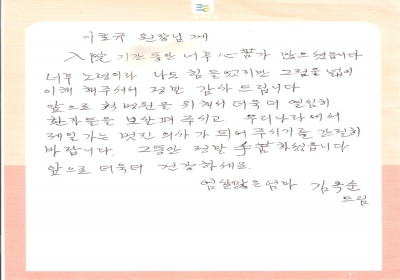 이호규 원장님께
入院 기간동안 너무 心苦가 많으셨습니다
너무 노령이라 나도 힘들었지만 그점을 넓이
이해 해주셔서 정말 감사드립니다
앞으로 현 병원을 위해서 더욱더 열심히
환자들을 보살펴 주시고. 우리나라에서
제일가는 멋진 의사가 되어 주시기를 간절히
바랍니다. 그동안 정말 手苦하셨습니다
앞으로 더욱더 건강하세요.
엄살많은 엄마 김옥순
드림